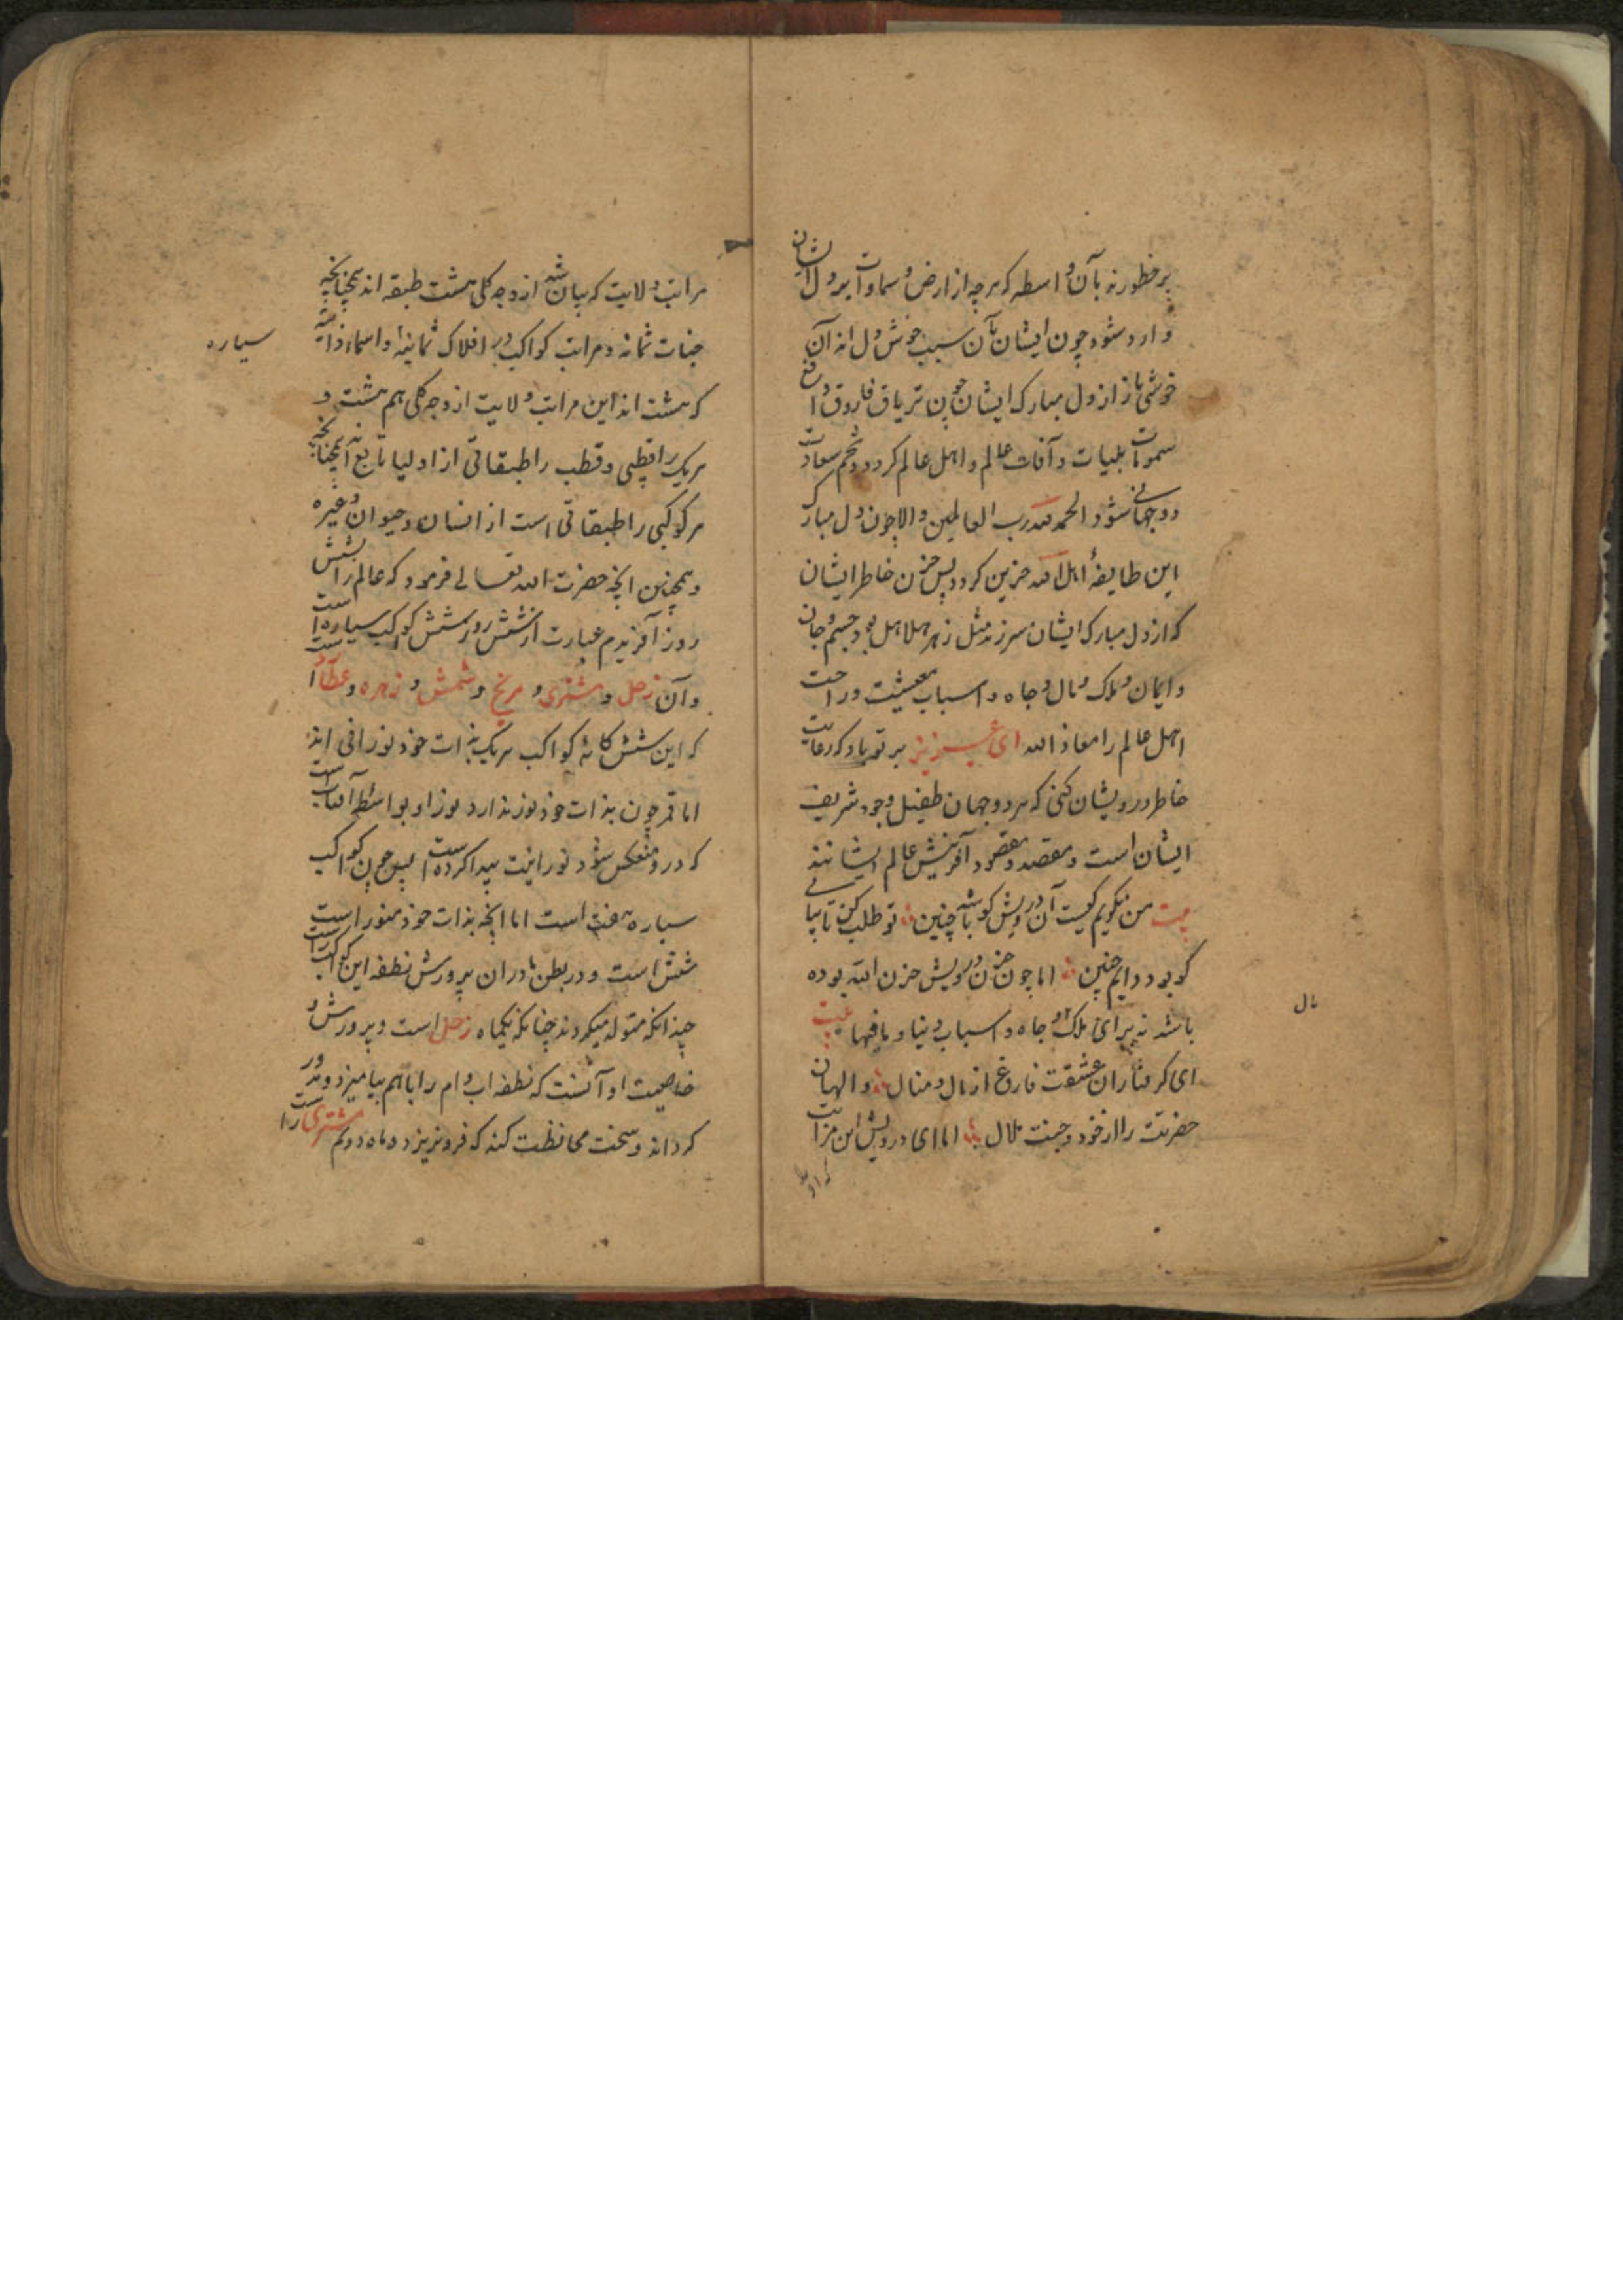 بر خطورند بآن واسطه که هرچه از ارض و سماوات بر دل ایشان
وارد شود چون ایشان بآن سبب خوش دل اند آن
خوشی باز از دل مبارک ایشان چون تریاق فاروق دافع
سموات بلیات و آفات عالم و اهل عالم کردد و تخم سعادت
دوجهانی شود الحمد لله رب العالمین و الا چون دل مبارک
این طایفهٔ اهل الله حزین کردد پس حزن خاطر ایشان
که از دل مبارک ایشان سر زند مثل زهر هلاهل بود جسم و جان
و ایمان و ملک و مال و جاه و اسباب معیشت و راحت
اهل عالم را معاذ الله ای عزیز بر تو باد که رعایت
خاطر درویشان کنی که هر دو جهان طفیل وجود شریف
ایشان است و مقصد و مقصود آفرینش عالم ایشانند
بیت من نکویم کیست آن درویش کو باشد چنین تو طلب کن تا بیابی
کو بود دایم چنین اما چون حزن درویش حزن الله بوده
باشد نه برای ملک و جاه و اسباب دنیا و مافیها بیت
مال
ای کرفتاران عشقت فارغ از مال و منال والهان
حضرتت را از خود و جنت ملال اما ای درویش این مراتب
مراتب ولایت که بیان شد از وجه کلی هشت طبقه اند همچنانچه
جنات ثمانه و مراتب کواکب در افلاک ثمانیه و اسماء ذاتیه
سیاره
که هشت اند این مراتب ولایت از وجه کلی هم هشت و
هریک را قطبی و قطب را طبقاتی از اولیا تابع اند همچنانچه
هر کوکبی را طبقاتی است از انسان و حیوان و غیره
و همچنین انچه حضرت الله تعالی فرمود که عالم را شش
روز آفریدم عبارت از شش روز شش کوکب سیاره است
و آن زحل و مشتری و مریخ و شمس و زهره و عطارد است
که این شش کانه کواکب هریک بذات خود نورانی اند
اما قمر چون بذات خود نور ندارد نور او بواسطه آفتاب است
که در او منعکس شود نورانیت پیدا کرده است پس چون کواکب
سیاره هفت است اما انچه بذات خود منور است
شش است و در بطن مادران پرورش نطفه این کواکب راست
چندانکه متولد میکردند چنانکه یکماه زحل است و پرورش و
خاصیت او آنست که نطفه اب و ام را باهم بیامیزد و مدور
کرداند و سخت محافظت کند که فرو نریزد و ماه دویم مشتری راست